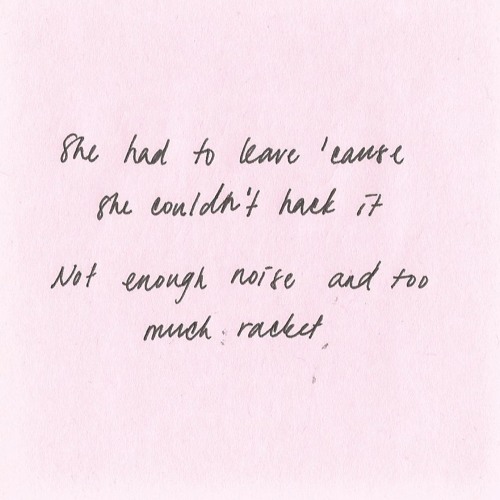 She had to leave 'cause
she couldn't hack it
Not enough noise and too
much racket